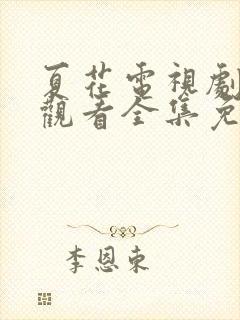 夏花電視劇
觀看全集免
李恩東